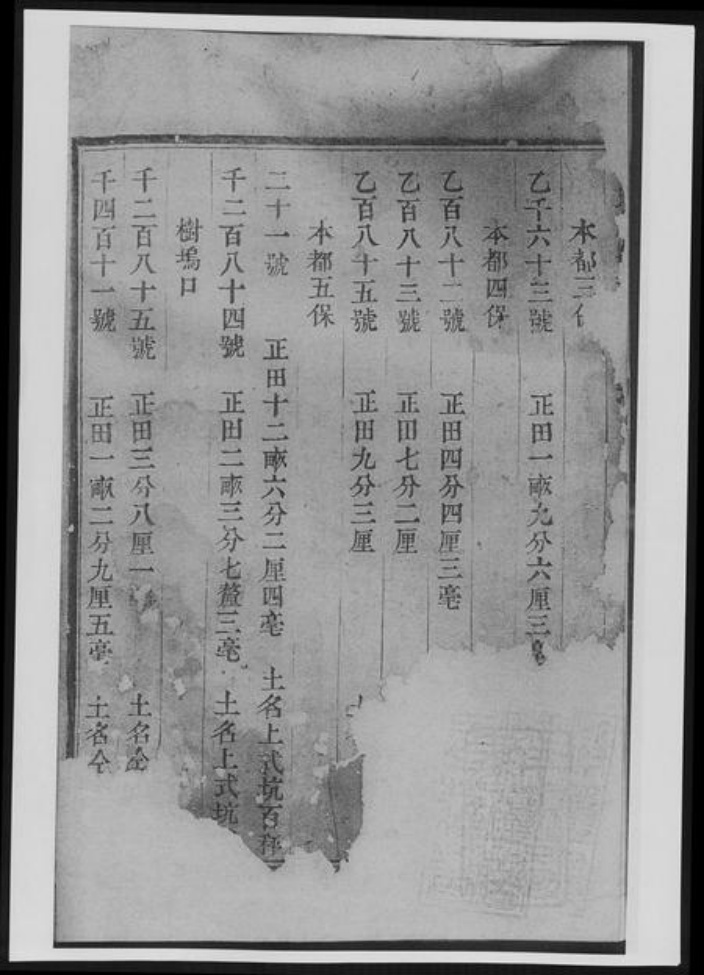 本都三保
乙千六十三號 正田一畝九分六厘三毫
本都四保
乙百八十二號 正田四分四厘三毫
乙百八十三號 正田七分二厘
乙百八十五號 正田九分三厘
本都五保
二十一號 正田十二畝六分二厘四毫 土名上式坑百秤
千二百八十四號 正田二畝三分七釐三毫 土名上式坑
樹塢口
千二百八十五號 正田三分八厘一 土名仝
千四百十一號 正田一畝二分九厘五毫 土名仝